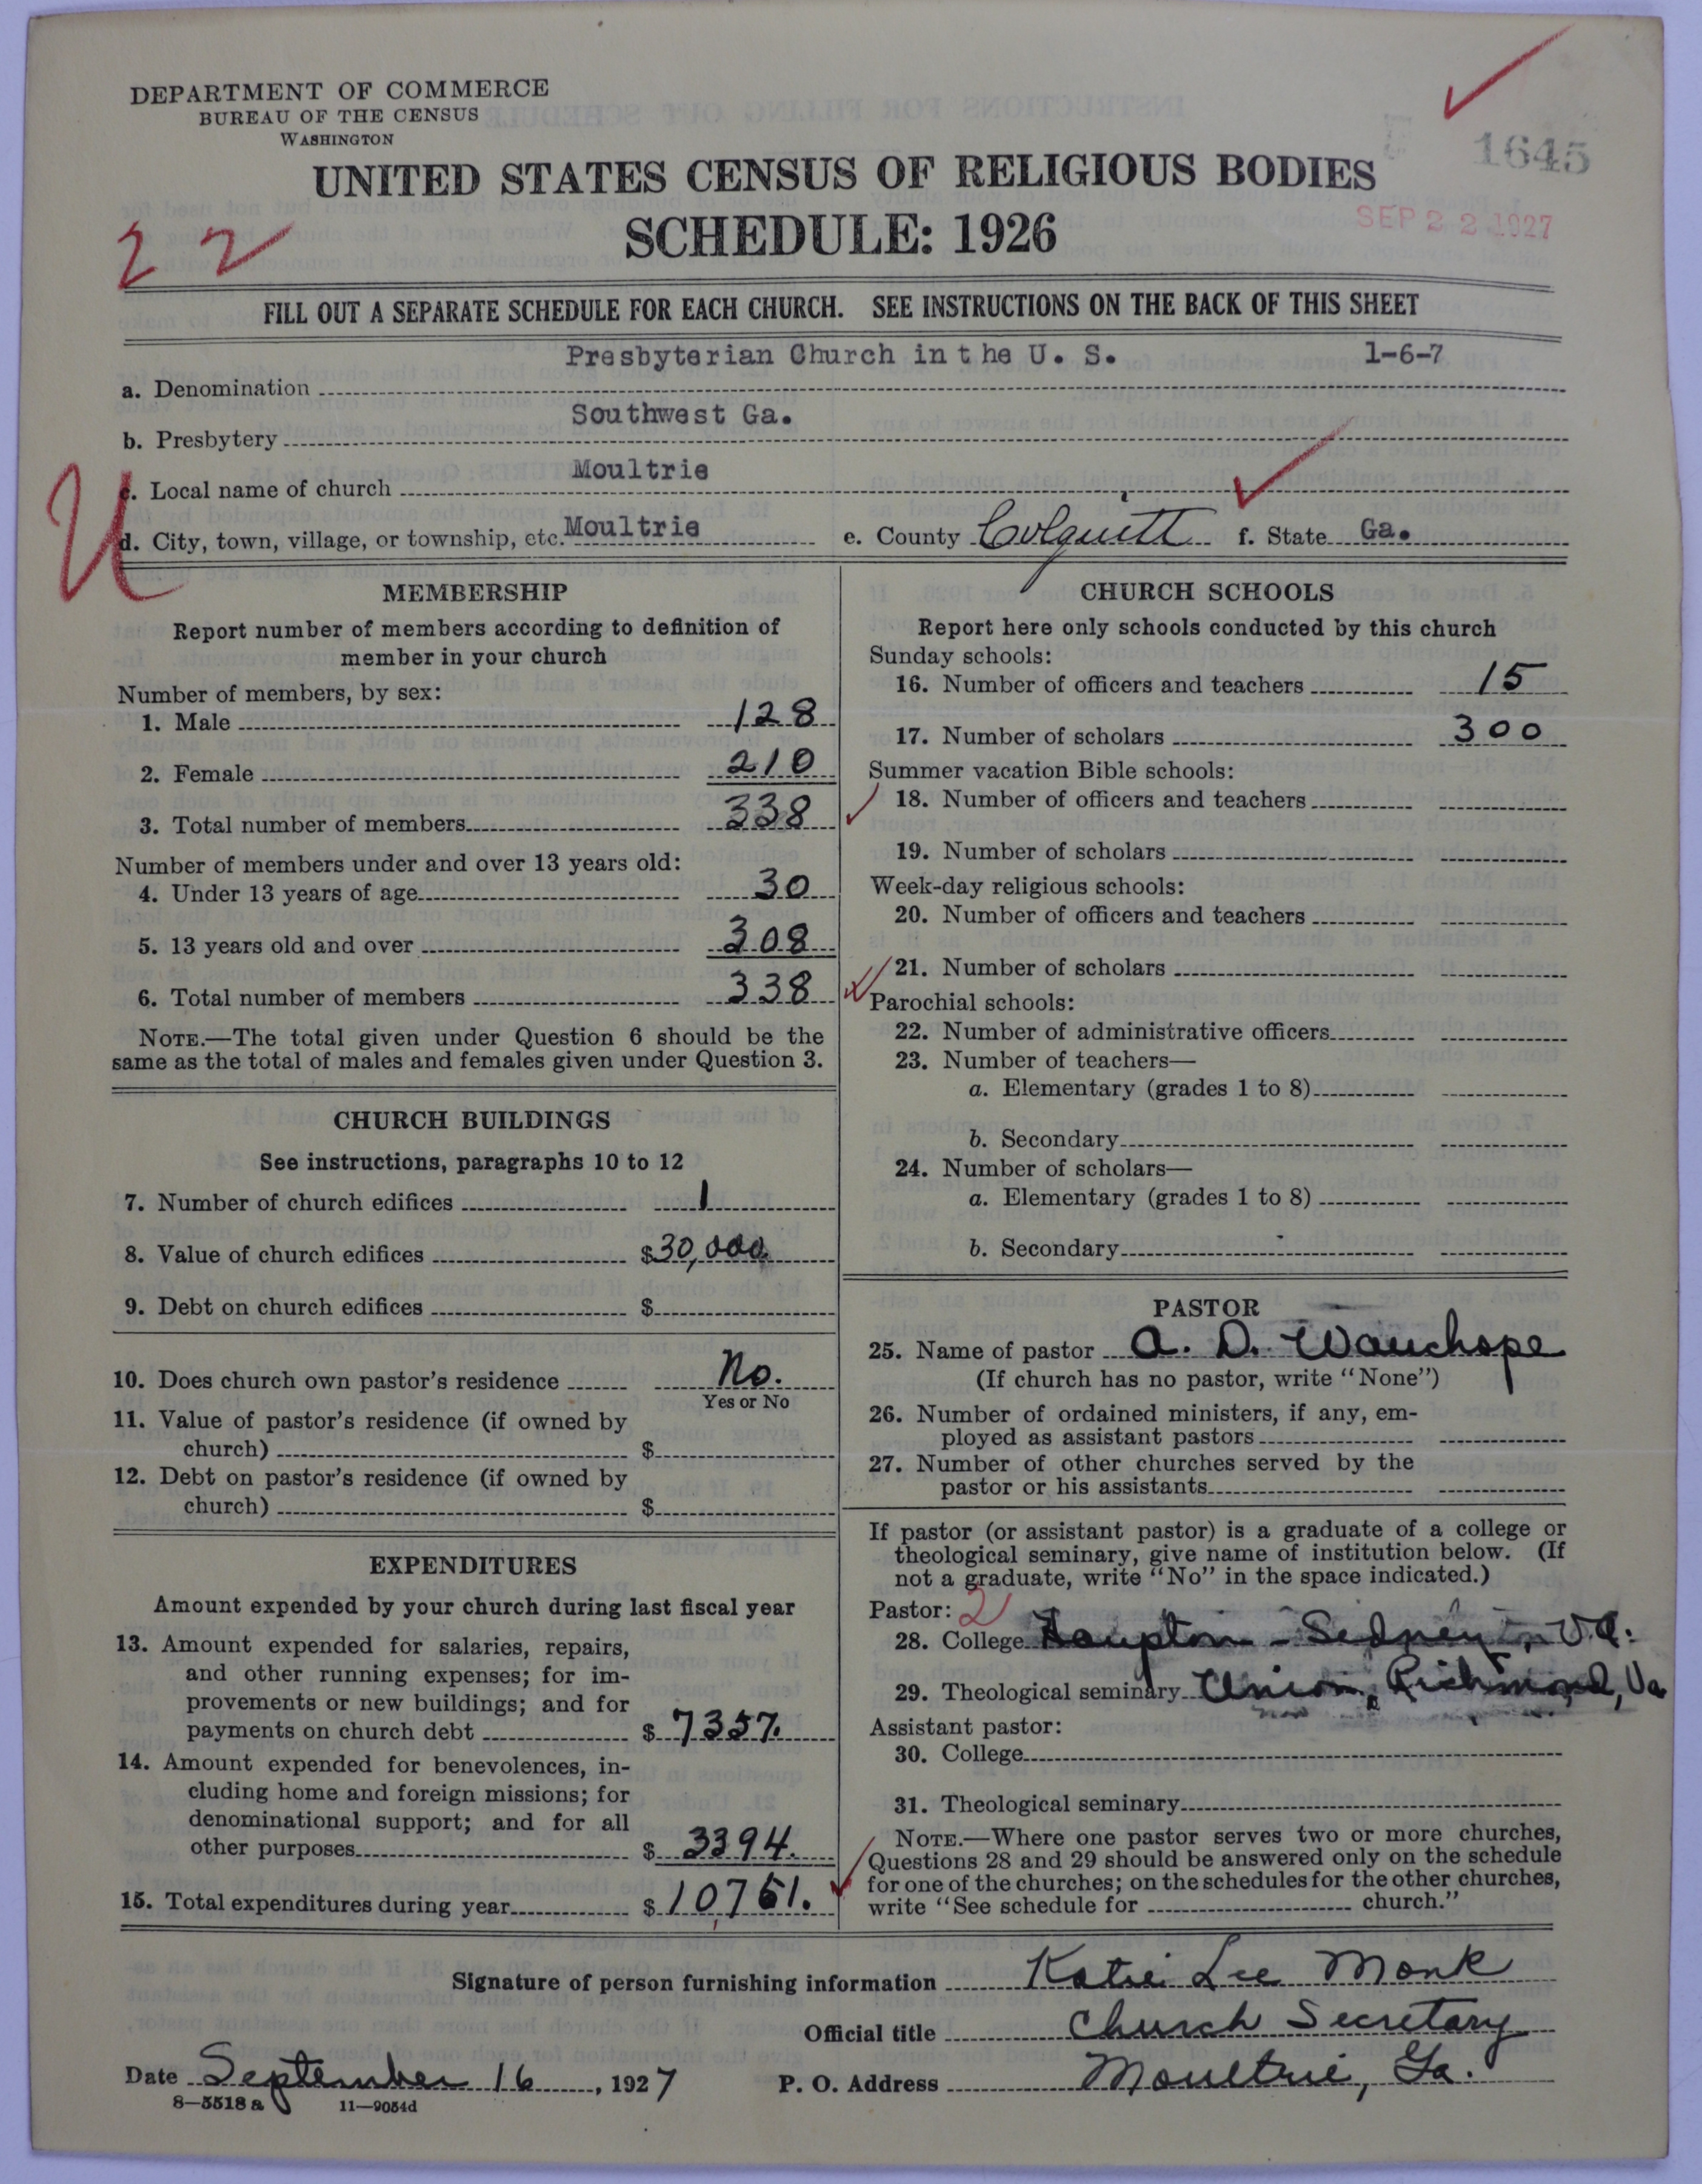 DEPARTMENT OF COMMERCE
BUREAU OF THE CENSUS
WASHINGTON
1645
UNITED STATES CENSUS OF RELIGIOUS BODIES
SEP 22 1927
SCHEDULE: 1926
22
FILL OUT A SEPARATE SCHEDULE FOR EACH CHURCH. SEE INSTRUCTIONS ON THE BACK OF THIS SHEET
a. Denomination Presbyterian Church in the U. S. 1-6-7
b. Presbytery Southwest Ga.
c. Local name of church Moultrie
U
d. City, town, village, or township, etc. Moultrie e. County Colquitt f. State Ga.
MEMBERSHIP
Report number of members according to definition of
member in your church
Number of members, by sex:
1. Male 128
2. Female 210
3. Total number of members 338
Number of members under and over 13 years old:
4. Under 13 years of age 30
5. 13 years old and over 308
6. Total number of members 338
NOTE.—The total given under Question 6 should be the
same as the total of males and females given under Question 3.
CHURCH BUILDINGS
See instructions, paragraphs 10 to 12
7. Number of church edifices 1
8. Value of church edifices $30,000
9. Debt on church edifices $
10. Does church own pastor's residence No.
Yes or No
11. Value of pastor's residence (if owned by
church) $
12. Debt on pastor's residence (if owned by
church) $
EXPENDITURES
Amount expended by your church during last fiscal year
13. Amount expended for salaries, repairs,
and other running expenses; for im-
provements or new buildings; and for
payments on church debt $ 7357.
14. Amount expended for benevolences, in-
cluding home and foreign missions; for
denominational support; and for all
other purposes $ 3394.
15. Total expenditures during year $ 10,751.
CHURCH SCHOOLS
Report here only schools conducted by this church
Sunday schools:
16. Number of officers and teachers 15
17. Number of scholars 300
Summer vacation Bible schools:
18. Number of officers and teachers
19. Number of scholars
Week-day religious schools:
20. Number of officers and teachers
21. Number of scholars
Parochial schools:
22. Number of administrative officers
23. Number of teachers—
a. Elementary (grades 1 to 8)
b. Secondary
24. Number of scholars—
a. Elementary (grades 1 to 8)
b. Secondary
PASTOR
25. Name of pastor A. D. Wauchope
(If church has no pastor, write "None")
26. Number of ordained ministers, if any, em-
ployed as assistant pastors
27. Number of other churches served by the
pastor or his assistants
If pastor (or assistant pastor) is a graduate of a college or
theological seminary, give name of institution below. (If
not a graduate, write "No" in the space indicated.)
Pastor: 2
28. College Haupton - Sedney, Va.
29. Theological seminary Union, Richmond, Va
Assistant pastor:
30. College
31. Theological seminary
NOTE.—Where one pastor serves two or more churches,
Questions 28 and 29 should be answered only on the schedule
for one of the churches; on the schedules for the other churches,
write "See schedule for church."
Signature of person furnishing information Katie Lee Monk
Official title Church Secretary
Date September 16, 1927 P. O. Address Moultrie, Ga.
8—5518 a 11—9054d